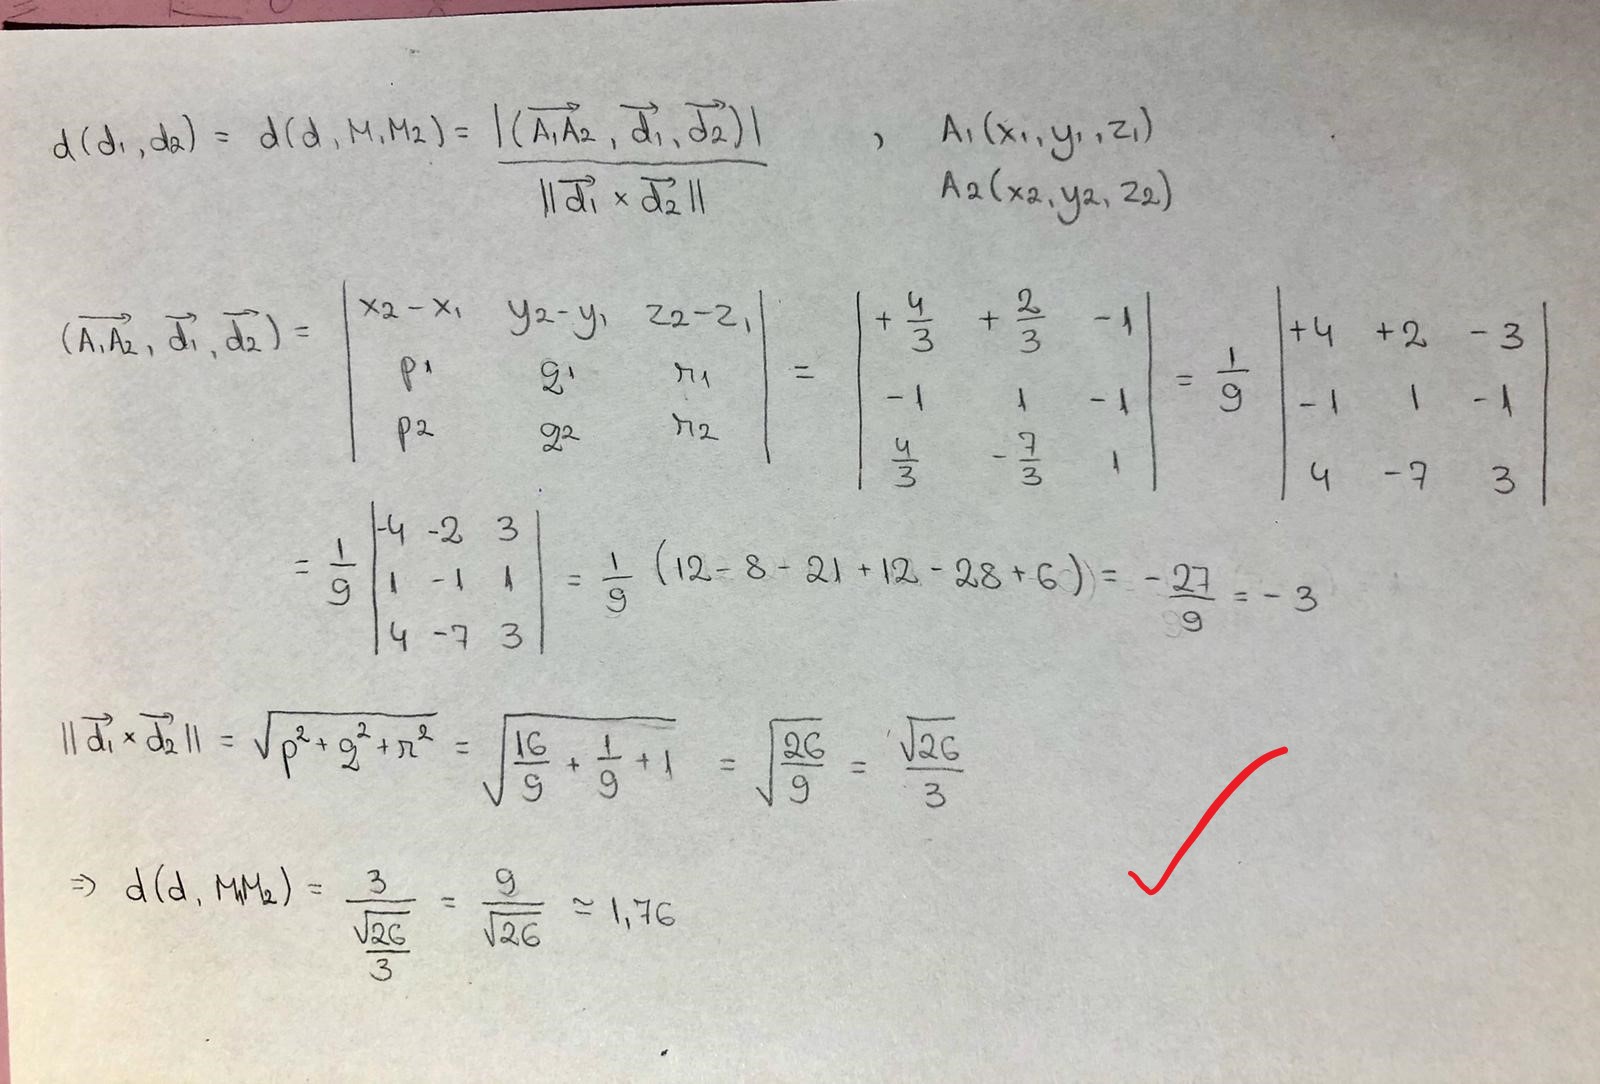 d(d₁, d₂) = d(d, M₁M₂) = |(A₁A₂, d₁, d₂)| / ||d₁ × d₂|| , A₁(x₁, y₁, z₁)
A₂(x₂, y₂, z₂)
(A₁A₂, d₁, d₂) = | x₂-x₁ y₂-y₁ z₂-z₁ ; p₁ q₁ r₁ ; p₂ q₂ r₂ | = | +4/3 +2/3 -1 ; -1 1 -1 ; 4/3 -7/3 1 | = 1/9 | +4 +2 -3 ; -1 1 -1 ; 4 -7 3 |
= 1/9 | -4 -2 3 ; 1 -1 1 ; 4 -7 3 | = 1/9 (12 - 8 - 21 + 12 - 28 + 6) = -27/9 = -3
||d₁ × d₂|| = √(p² + q² + r²) = √(16/9 + 1/9 + 1) = √(26/9) = √26/3
⇒ d(d, M₁M₂) = 3/(√26/3) = 9/√26 ≃ 1,76